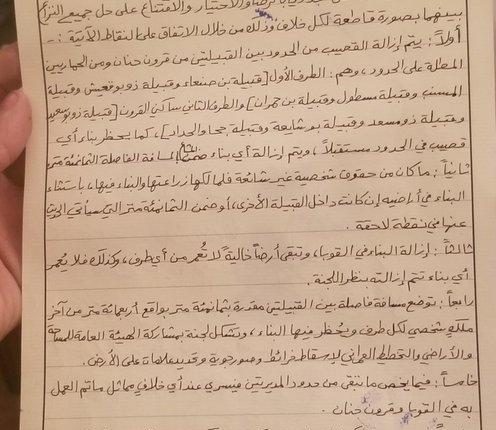 بينهما بصورة قاطعة لكل خلاف وذلك من خلال الاتفاق على النقاط الآتية :-
أولاً : يتم إزالة القصيب من الحدود بين القبيلتين من قرون حنان ومن الجهاريين
المطلة على الحدود، وهم : الطرف الأول [قبيلة بن صنعاء وقبيلة ذو بوقعيش وقبيلة
وقبيلة مسطول وقبيلة بن حمران] والطرف الثاني ساكني القرون [قبيلة ذو
وقبيلة ذو مسعد وقبيلة بورشايعة وقبيلة جحا والحداد]، كما يحظر بناء أي
قصيب في الحدود مستقبلاً، ويتم إزالة أي بناء ضمن المسافة الفاصلة الثمانمئة متر
ثانياً : ما كان من حقوق شخصية غير شائعة فلمالكها زراعتها والبناء فيها، باستثناء
البناء في أراضيه إن كانت داخل القبيلة الأخرى، أو ضمن الثمانمئة متر التي سيأتي الحديث
عنها في نقطة لاحقة .
ثالثاً : إزالة البناء في القوبا، وتبقى أرضاً خاليةً لا تُعمر من أي طرف، وكذلك فلا يُعمر
أي بناء تتم إزالته بنظر اللجنة .
رابعاً : توضع مسافة فاصلة بين القبيلتين مقدرة بثمانمئة متر بواقع أربعمائة متر من آخر
ملكٍ شخصي لكل طرف ويُحظر فيها البناء ، وتشكل لجنة بمشاركة الهيئة العامة للمساحة
والأراضي والتخطيط العمراني لإسقاط خرائط وصور جوية وتحديد علامات على الأرض.
خامساً : فيما يخص ما تبقى من حدود المديرتين فيسري عند أي خلافٍ مماثل ما تم العمل
به في القوبا وقرون حنان .